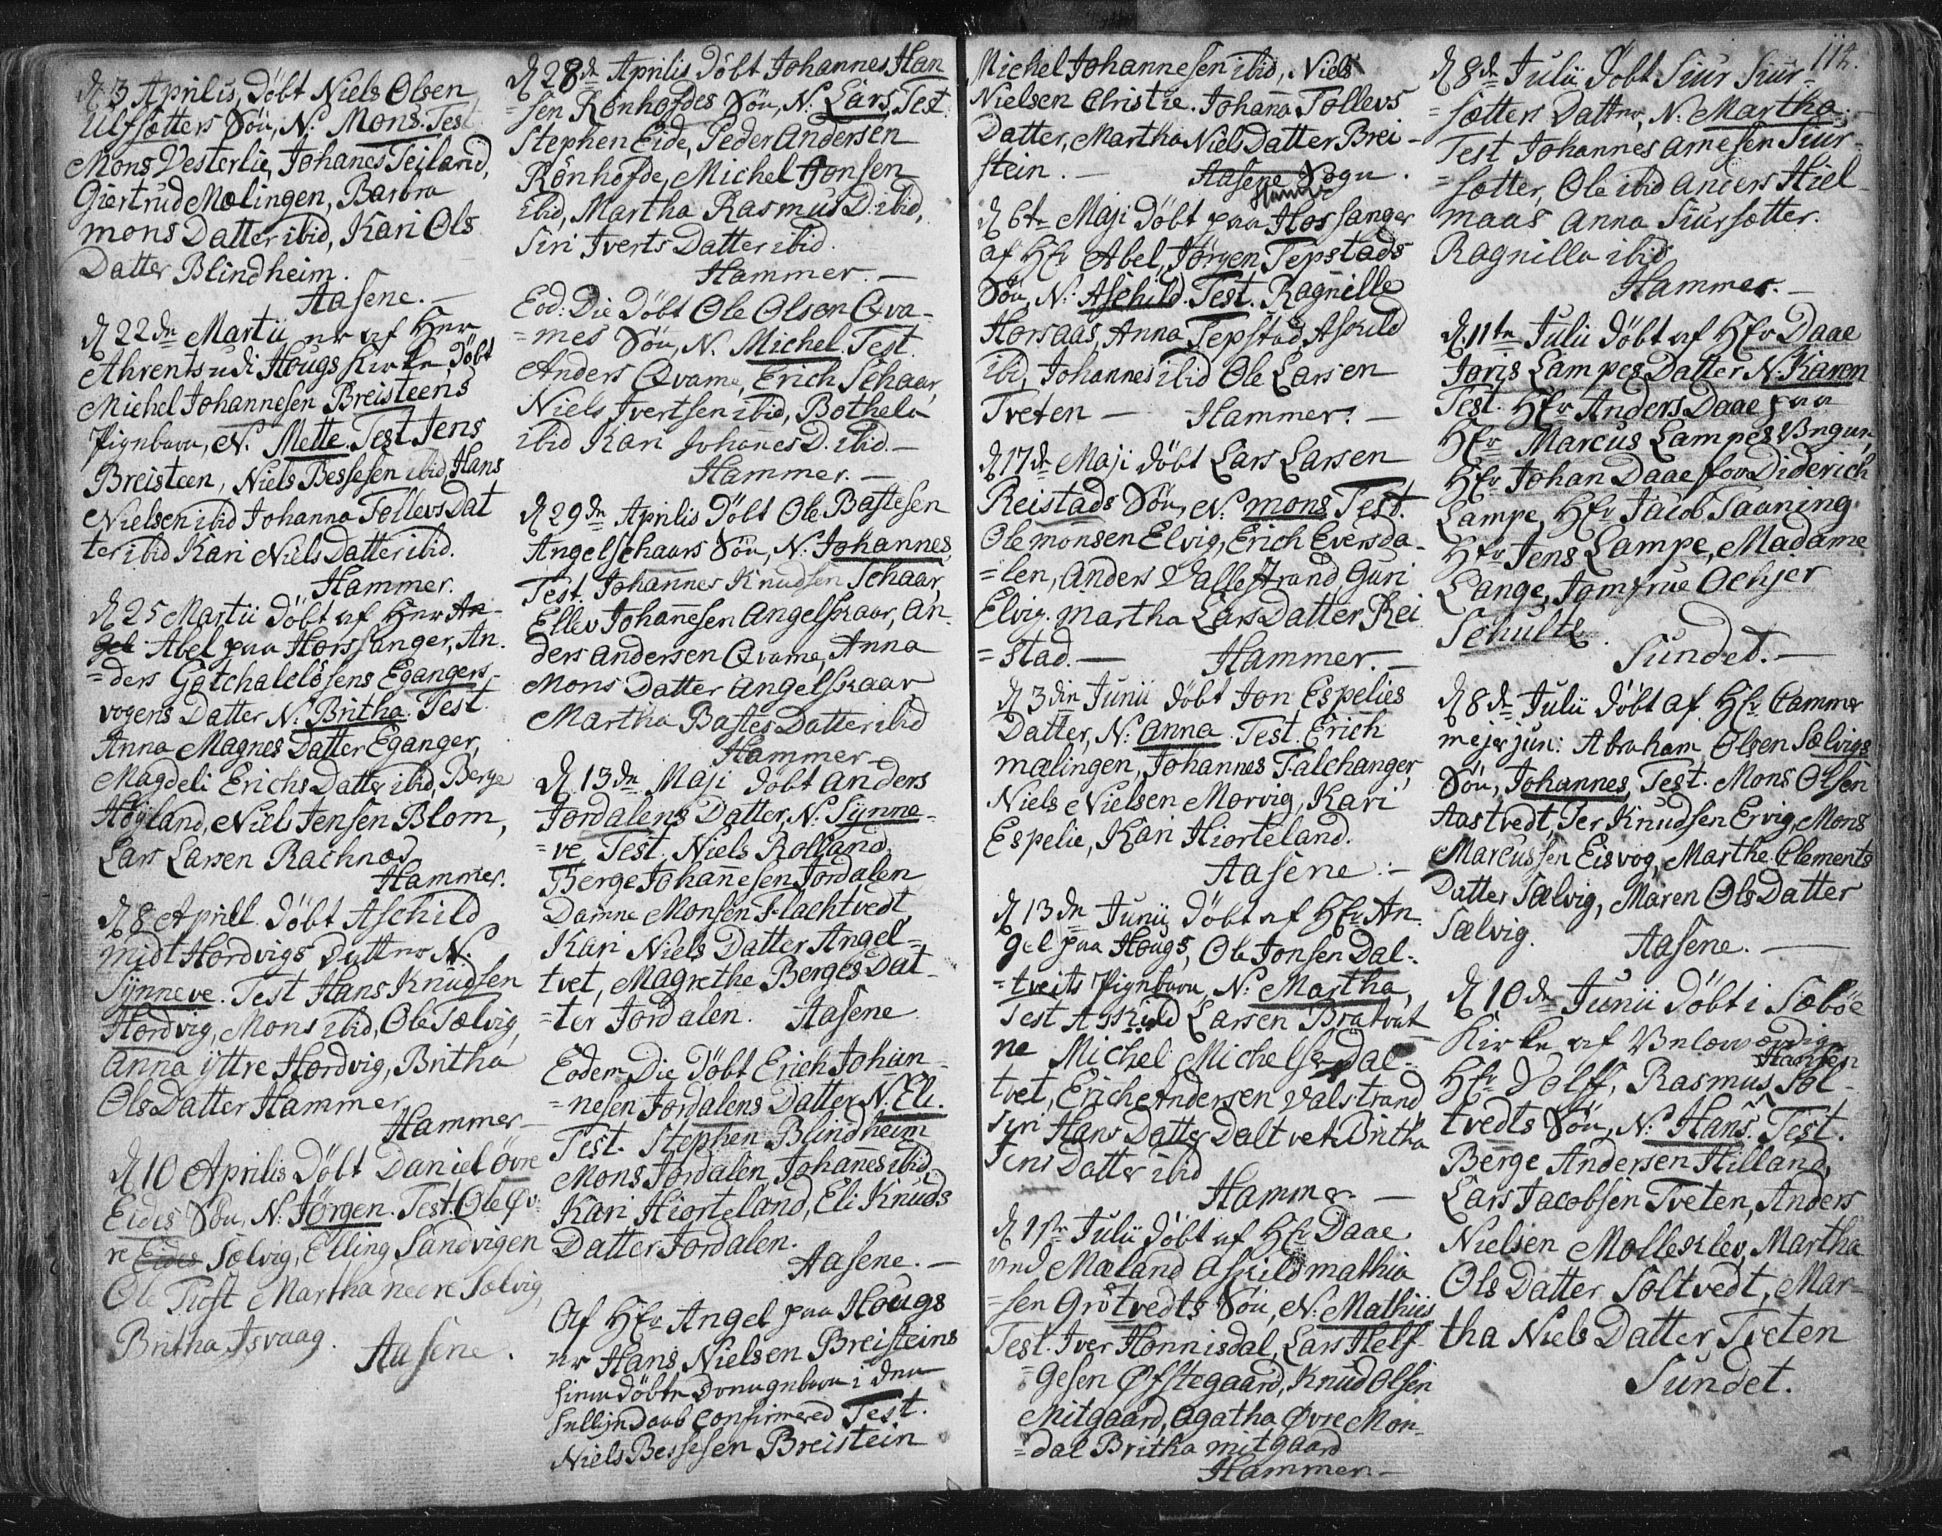 d. 3 Aprilis, Döbt Niels Olsen
Ulfsætters Sön, N: Mons. Test
Mons Vesterlie, Johanes Teiland,
Giertrud Mælingen, Barbra
mons Datter ibid, Kari Ols
Datter Blindheim.
Aasene. —
d. 22de Martii er af Herr
Ahrents udi Hougs Kirke Döbt
Michel Johannesen Breisteens
Pigebarn, N. Mette. Test Jens
Breisteen, Niels Bessesen ibid, Hans
Nielsen ibid Johanna Tollevs Dat
ter ibid Kari Niels Datter ibid.
Hammer.
d. 25 Martii Döbt af Herr An-
gel Abel paa Horssanger, An-
=ders Gotchalclösens Eganger-
vogens Datter N: Britha. Test
Anna Magnes Datter Eganger,
Magdeli Erichs Datter ibid, Berge
Höyland, Niels Jensen Blom,
Lars Larsen Rachnæs
Hammer.
d. 8 Aprill Döbt Aschild
midt Hordvigs Datter N.
Synneve. Test Hans Knudsen
Hordvig, Mons ibid, Ole Sælvig,
Anna yttre Hordvig, Britha
Ols Datter Hammer
Hammer —
d. 10 Aprilis Döbt Daniel övre
Eides Sön, N: Jörgen. Test: Ole Öv:
re Eides Sælvig, Elling Sandvigen
Ole Toft Martha nedre Sælvig,
Britha Isvaag.
Aasene.
d. 28de Aprilis Döbt Johannes Han
=sen Rönhofdes Sön, N: Lars, Test
Stephen Eide, Peder Andersen
Rönhofde, Michel Jonsen
ibid, Martha Rasmus D: ibid,
Siri Iverts Datter ibid.
Hammer. —
Eod: Die Döbt Ole Olsen Qva-
=mes Sön, N. Michel. Test
Anders Qvame, Erich Schaar,
Niels Ivertsen ibid, Bothela
ibid Kari Johanes D. ibid. —
Hammer. —
d. 29de Aprilis Döbt Ole Bastesen
Angelschaars Sön, N: Johannes,
Test. Johannes Knudsen Schaar,
Ellev Johanesen Angelskaar, An-
ders Andersen Qvame, Anna
Mons Datter Angelskaar
Martha Bastes Datter ibid
Hammer —
d. 13de Maji Döbt Anders
Jordalens Datter, N: Synne-
=ve, Test. Niels Rolland,
Berge Johanesen Jordalen
Damne Monsen Flachtvedt,
Kari Niels Datter Angel-
tvet, Magrethe Berges Dat-
=ter Jordalen. Aasene
Eodem Die Döbt Erich Johan-
=nesen Jordalens Datter N. Eli.
Test. Stephen Blindheim
Mons Jordalen, Johanes ibid,
Kari Hiorteland, Eli Knuds
Datter Jordalen.
Aasene. —
Af Hr Angel paa Hougs
er Hans Nielsen Breisteins
hiemdöbte Drengebarn i den
hellig Daab Confirmered Test.
Niels Bessesen Breistein
114.
Michel Johannesen ibid, Niels
Nielsen Christie. Johana Tollevs
Datter, Martha Niels Datter Brei-
stein. — Aasene Sogn.
Hammer
d. 6te Maji Döbt paa Hossanger
af Hr Abel, Jörgen Tepstads
Sön, N: Aschild. Test. Ragnille
Horsaas, Anna Tepstad, Askild
ibid, Johannes ibid Ole Larsen
Tveten — Hammer: —
d. 17de Maji Döbt Lars Larsen
Reistads Sön, N: Mons Test.
Ole monsen Elvig, Erich Eversda-
=len, Anders Vallestrand Guri
Elvig. Martha Lars Datter Rei
=stad. — Hammer. —
d. 3die Junii Döbt Jon Espelies
Datter, N: Anna. Test. Erich
mælingen, Johannes Talchanger,
Niels Nielsen Morvig, Kari
Espelie, Kari Hiorteland.
Aasene. —
d. 13de Junij Döbt af Hr An-
gel paa Hougs, Ole Jonsen Dal-
=tveits Pigebarn, N: Martha,
Test Askild Larsen Bratvet
ne Michel Michelsen Dal-
tvet, Erich Andersen Valstrand,
Siri Hans Datter Daltvet Britha
Jens Datter ibid
Hammer. —
d. 1ste Julii Döbt af Hr Daae
ved Mæland Askild mathia
=sen Grötvedts Sön, N: Mathies
Test. Iver Honnisdal, Lars Helf-
=gesen Öfstegaard, Knud Olsen
Mitgaard, Agatha Övre Mon-
=dal Britha mitgaard
Hammer —
d. 8de Julii Döbt Siur Siur-
=sætters Datter, N. Martha.
Test Johannes Arnesen Siur-
=sætter, Ole ibid Anders Hiel-
maas Anna Siursætter.
Ragnilla ibid
Hammer. —
d. 11te Julii Döbt af Hr Daae
Joris Lampes Datter N. Karen
Test. Hr Anders Daae paa
Hr Marcus Lampes Vegne,
Hr Johan Daae for Diderich
Lampe, Hr Jacob Taaning
Hr Jens Lampe, Madame
Lange, Jomfrue Ochser
Schultz.
Sundet. —
d. 8de Julii Döbt af Hr Cammer
mejer jun: Abraham Olsen Sælvigs
Sön, Johannes, Test. Mons Olsen
Aastvedt, Per Knudsen Ervig, Mons
Marcussen Eisvog, Marthe Clements
Datter Sælvig, Maren Ols Datter
Sælvig. Aasene. —
d. 10de Junii Döbt i Sæböe
Kirke af Velærværdige
Hansen
Hr Volff, Rasmus Sol-
tvedts Sön, N: Hans. Test.
Berge Andersen Hilland,
Lars Jacobsen Tveten, Anders
Nielsen Molleklev, Martha
Ols Datter Soltvedt, Mar-
tha Niels Datter Tveten
Sundet.